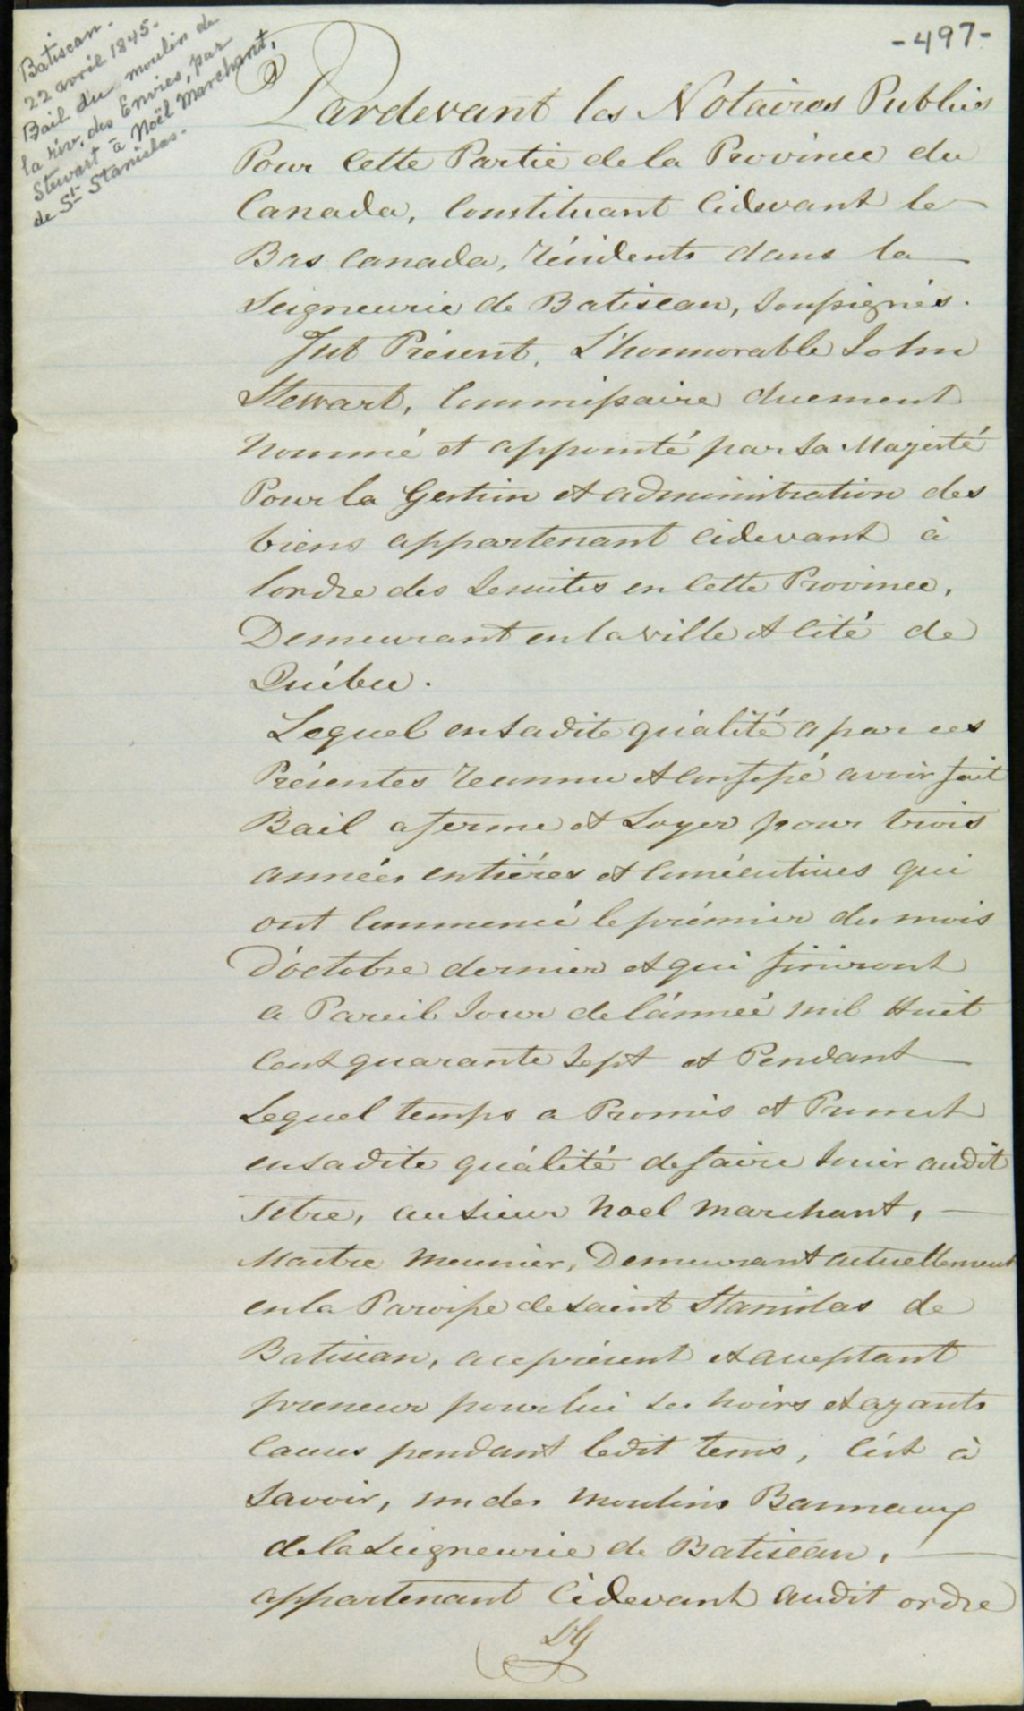 Batiscan.
22 avril 1845.
Bail du moulin de
la riv. des Envies, par
Stewart à Noël Marchant,
de St Stanislas.
-497-
Pardevant les Notaires Publics
Pour Cette Partie de la Province du
Canada, Constituant Cidevant le
Bas Canada, Résidents dans la
Seigneurie de Batiscan, Soussignés.
Fut Présent, L'honnorable John
Stewart, Commissaire duement
Nommé et appointé par Sa Majesté
Pour la Gestion et administration des
biens appartenant cidevant à
lordre des Jesuites en Cette Province,
Demeurant en la ville et Cité de
Québec.
Lequel en Sadite quálité a par ces
Présentes Reconnu et Confessé avoir fait
Bail a ferme et Loyer pour trois
années entiéres et Consécutives qui
ont Commencé le prémier du mois
D'octobre dernier et qui finiront
a Pareil Jour de lánnée mil Huit
Cent quarante Sept et Pendant
Lequel temps a Promis et Promet
en Sadite quálité de faire Jouir audit
titre, au Sieur Noel Marchant,
Maitre Meunier, Demeurant actuellement
en la Paroisse de Saint Stanislas de
Batiscan, a ce présent et acceptant
preneur pour lui Ses hoirs et ayants
Causes pendant ledit tems, C'est à
Savoir, un des Moulins Bannaux
de la Seigneurie de Batiscan,
appartenant Cidevant audit ordre